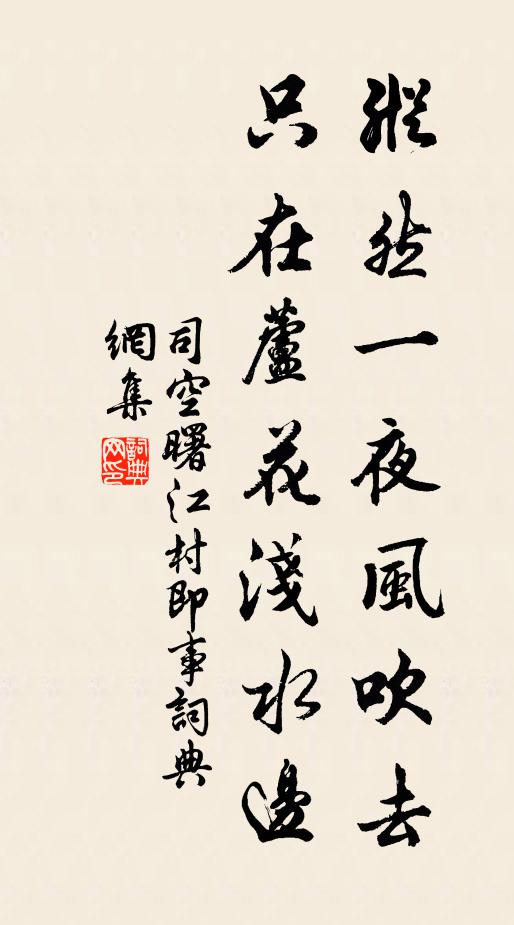 縱然一夜風吹去
只在蘆花淺水邊
司空曙江村即事詞典
網集
詞典
网印